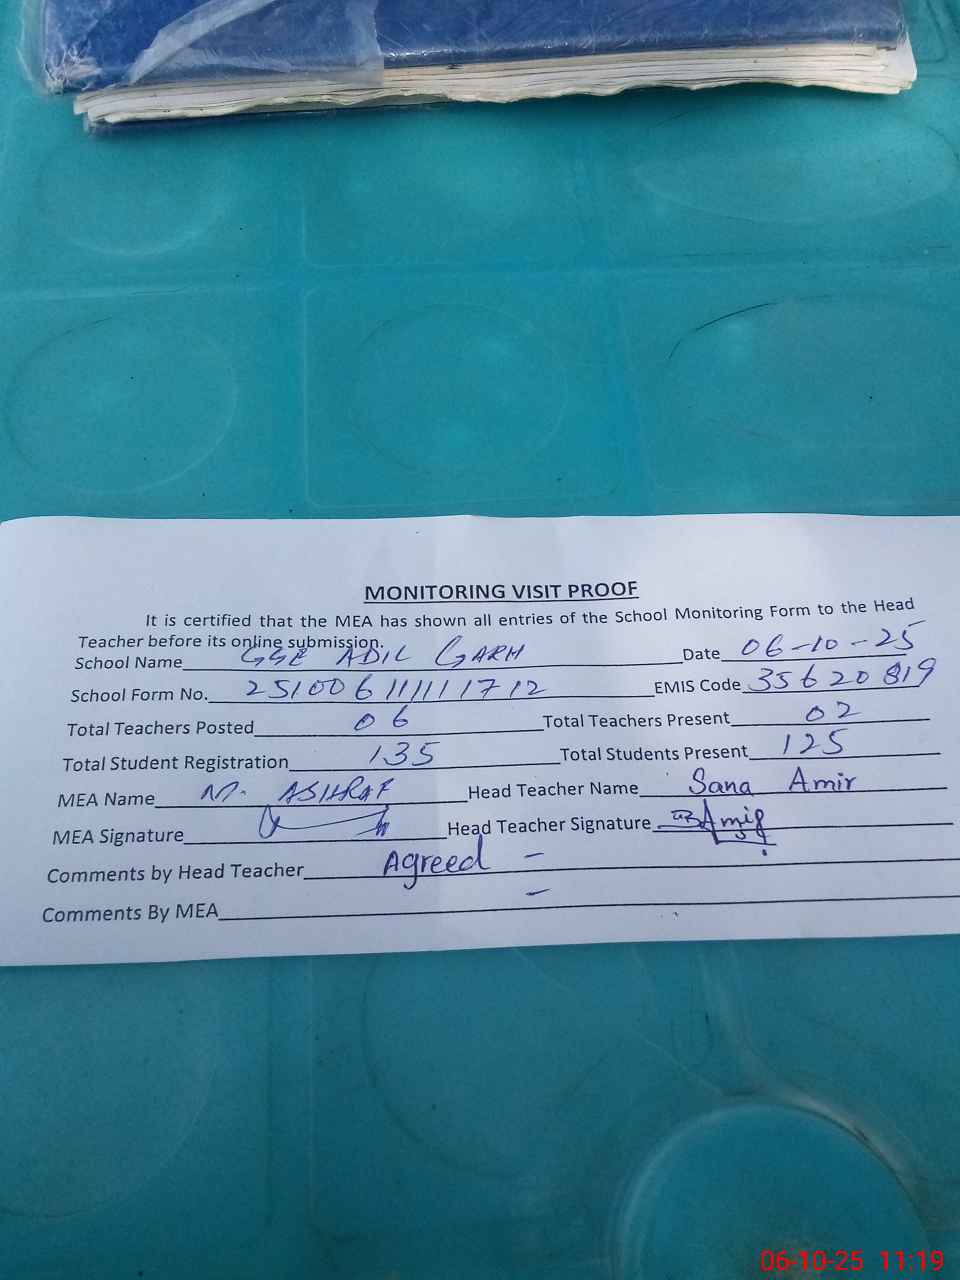 MONITORING VISIT PROOF
It is certified that the MEA has shown all entries of the School Monitoring Form to the Head
Teacher before its online submission.
School Name GGE ADIL GARH Date 06-10-25
School Form No. EMIS Code 35620819
Total Teachers Posted 06 Total Teachers Present 02
Total Student Registration 135 Total Students Present 125
MEA Name M. ASHRAF Head Teacher Name Sana Amir
MEA Signature Head Teacher Signature
Comments by Head Teacher Agreed –
Comments By MEA –
06-10-25 11:19